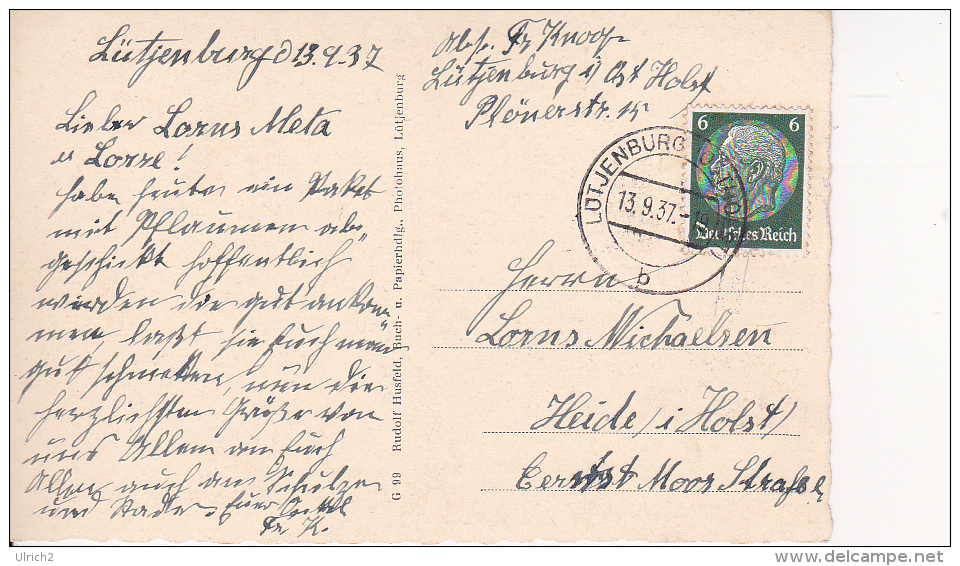 Lütjenburg d 13.9.37
Lieber Lorns Meta
u Lorre!
habe heute ein Paket
mit Pflaumen abe
geschickt hoffentlich
werden die gut ankom
men, laßt sie Euch man
gut schmecken, nun die
herzlichsten Grüße von
uns Allen an Euch
Allen auch an
und Euer
Fr K.
G 99 Rudolf Husfeld, Buch- u. Papierhdlg., Photohaus, Lütjenburg
Abs. Fr Knoop
Lütjenburg i/ Ost Holst
Plönerstr. 15
6 6
Deutsches Reich
LÜTJENBURG
13.9.37.-19
b
Herrn
Lorns Michaelsen
Heide /i Holst/
Moor Straße
Ulrich2
www.delcampe.net